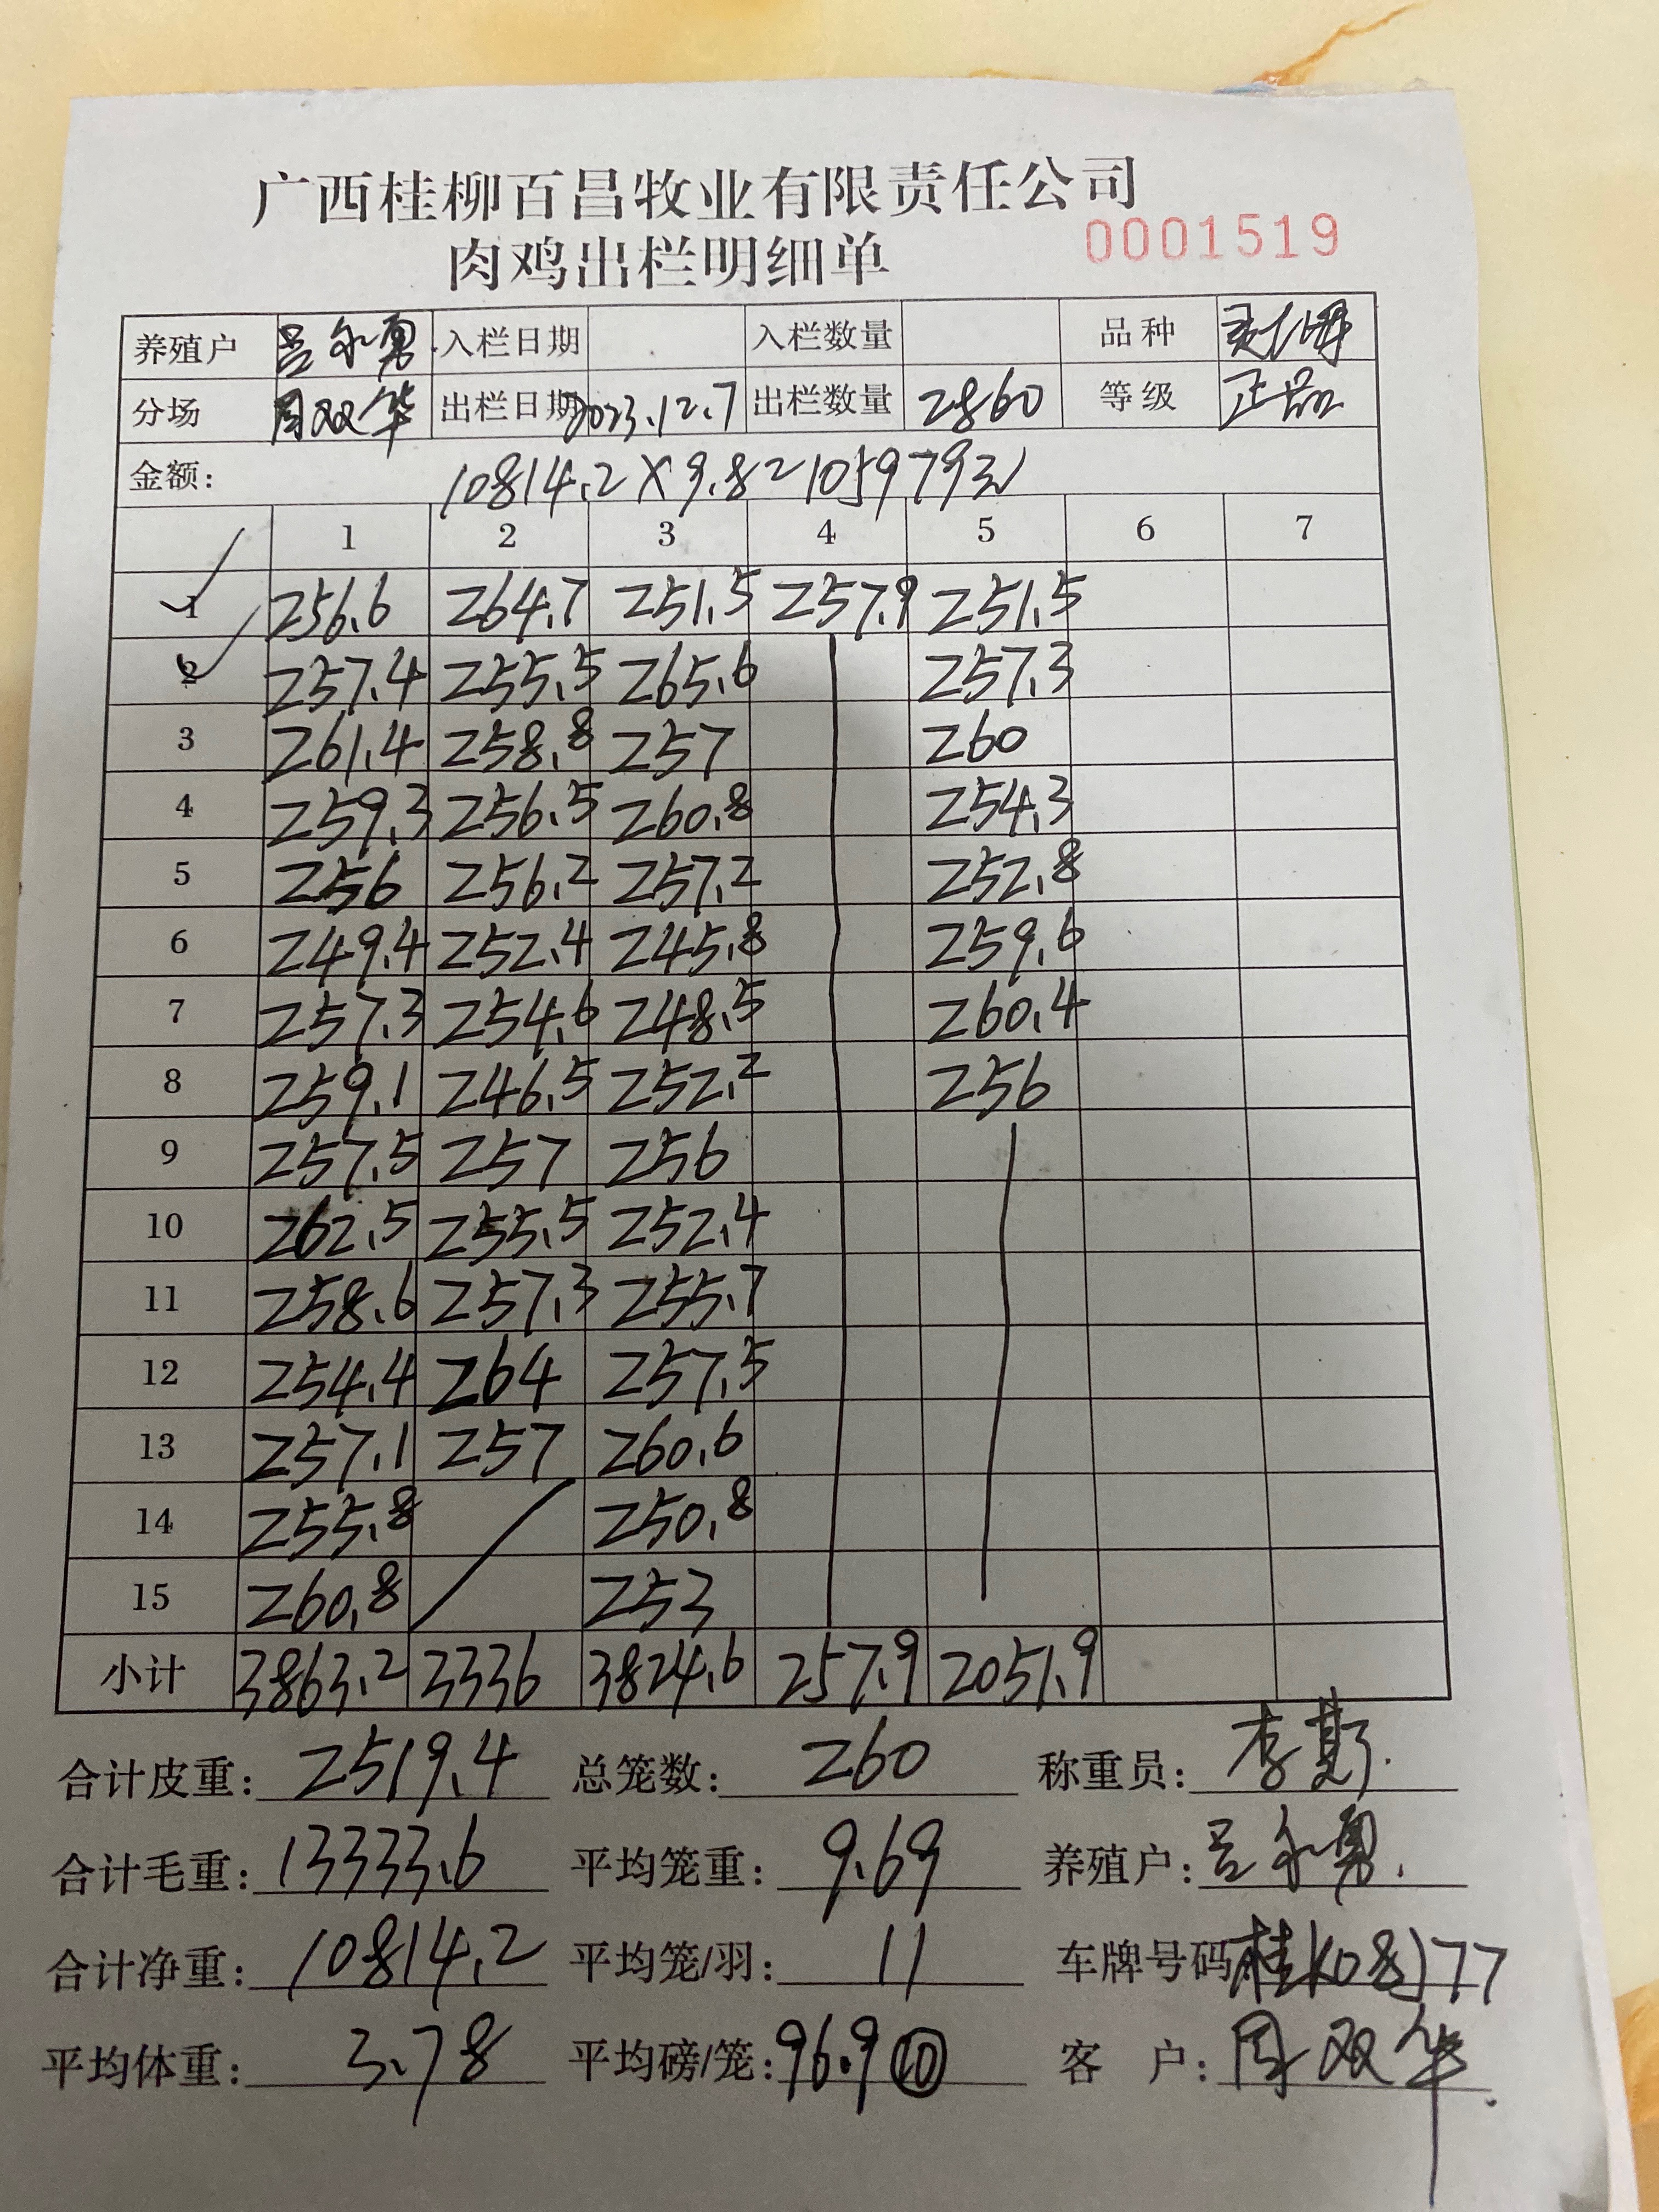 广西桂柳百昌牧业有限责任公司
肉鸡出栏明细单 0001519
养殖户 吕永勇 入栏日期 入栏数量 品种
分场 周双华 出栏日期 2023.12.7 出栏数量 2860 等级 正品
金额: 10814.2×9.8=105979元
1 2 3 4 5 6 7
1 256.6 264.7 251.5 257.9 251.5
2 257.4 255.5 265.6 257.3
3 261.4 258.8 257 260
4 259.3 256.5 260.8 254.3
5 256 256.2 257.2 252.8
6 249.4 252.4 245.8 259.6
7 257.3 254.6 248.5 260.4
8 259.1 246.5 252.2 256
9 257.5 257 256
10 262.5 255.5 252.4
11 258.6 257.3 255.7
12 254.4 264 257.5
13 257.1 257 260.6
14 255.8 250.8
15 260.8 253
小计 3863.2 3336 3824.6 257.9 2051.9
合计皮重: 2519.4 总笼数: 260 称重员: 李
合计毛重: 13333.6 平均笼重: 9.69 养殖户: 吕永勇
合计净重: 10814.2 平均笼/羽: 11 车牌号码 桂K08J77
平均体重: 3.78 平均磅/笼: 96.9 ⑩ 客 户: 周双华